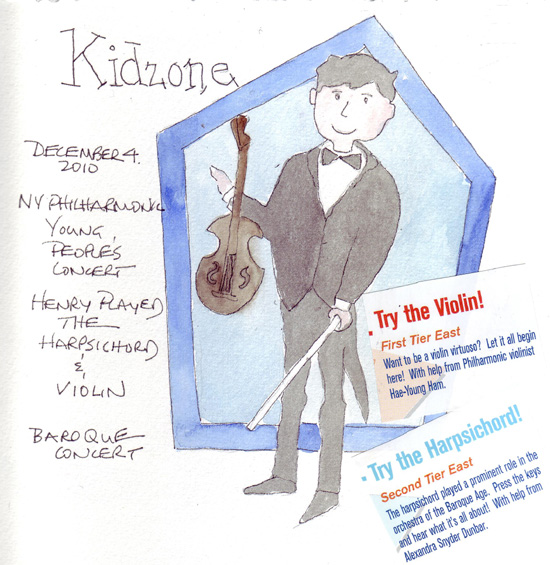 Kidzone
DECEMBER 4.
2010
NY PHILHARMONIC
YOUNG
PEOPLES
CONCERT
HENRY PLAYED
THE
HARPSICHORD
&
VIOLIN
BAROQUE
CONCERT
Try the Violin!
First Tier East
Want to be a violin virtuoso? Let it all begin
here! With help from Philharmonic violinist
Hae-Young Ham.
Try the Harpsichord!
Second Tier East
The harpsichord played a prominent role in the
orchestra of the Baroque Age. Press the keys
and hear what it's all about! With help from
Alexandra Snyder Dunbar.